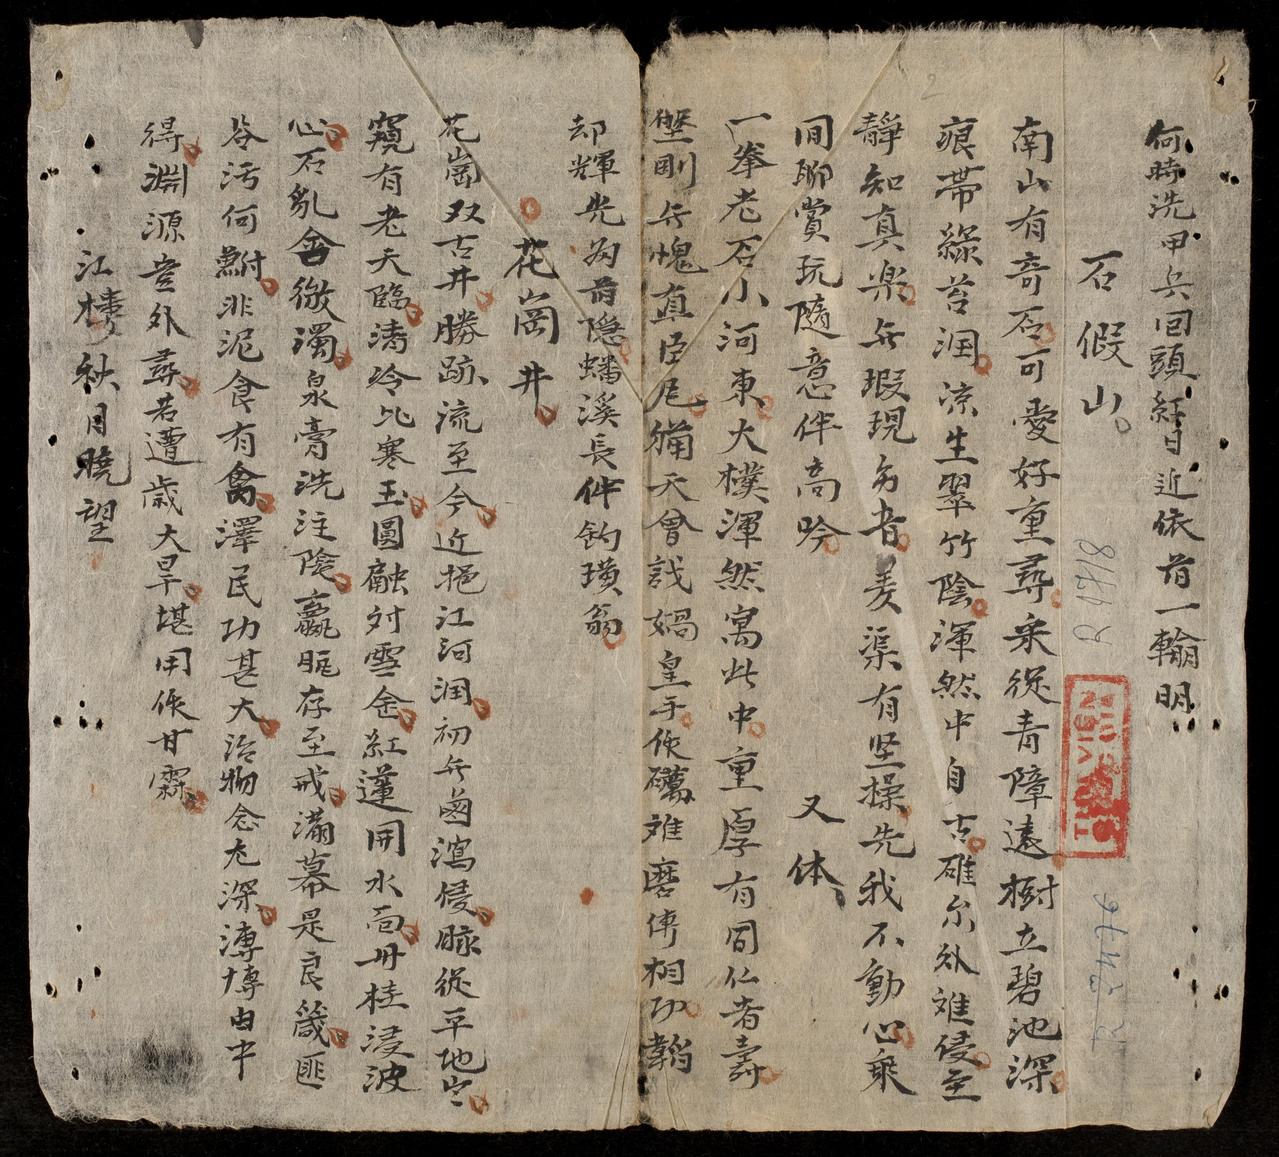 何時洗甲兵回頭紅日近依前一輪明
石假山
南山有奇石可愛好重尋来從青障遠樹立碧池深
痕帶綠苔润凉生翠竹陰渾然中自古碓尔外难侵至
靜知真楽無瑕現多音羡渠有坚操先我不動心乘
间聊賞玩隨意伴高吟
又体
一拳老石小河東大樸渾然寓此中重厚有同仁者壽
堅剛無愧直臣尼補天曾試媧皇手作礪难磨傅相功韜
却輝光为前隐蟠溪長伴釣璜翁
花崗井
花崗双古井勝跡流至今近挹江河润初無鹵瀉侵脉從平地
窺有老天臨清冷比寒玉圓融对雪金紅蓮開水面丹桂浸波
心石乱舍徴濁泉膏洗注陰羸甁存至戒滿幕是良箴匪
谷污何鮒非泥食有禽澤民功甚大治物念尤深溥博由中
得淵源豈外尋若遭歳大旱堪用作甘霖
江樓秋月曉望
2
THƯ VIỆN